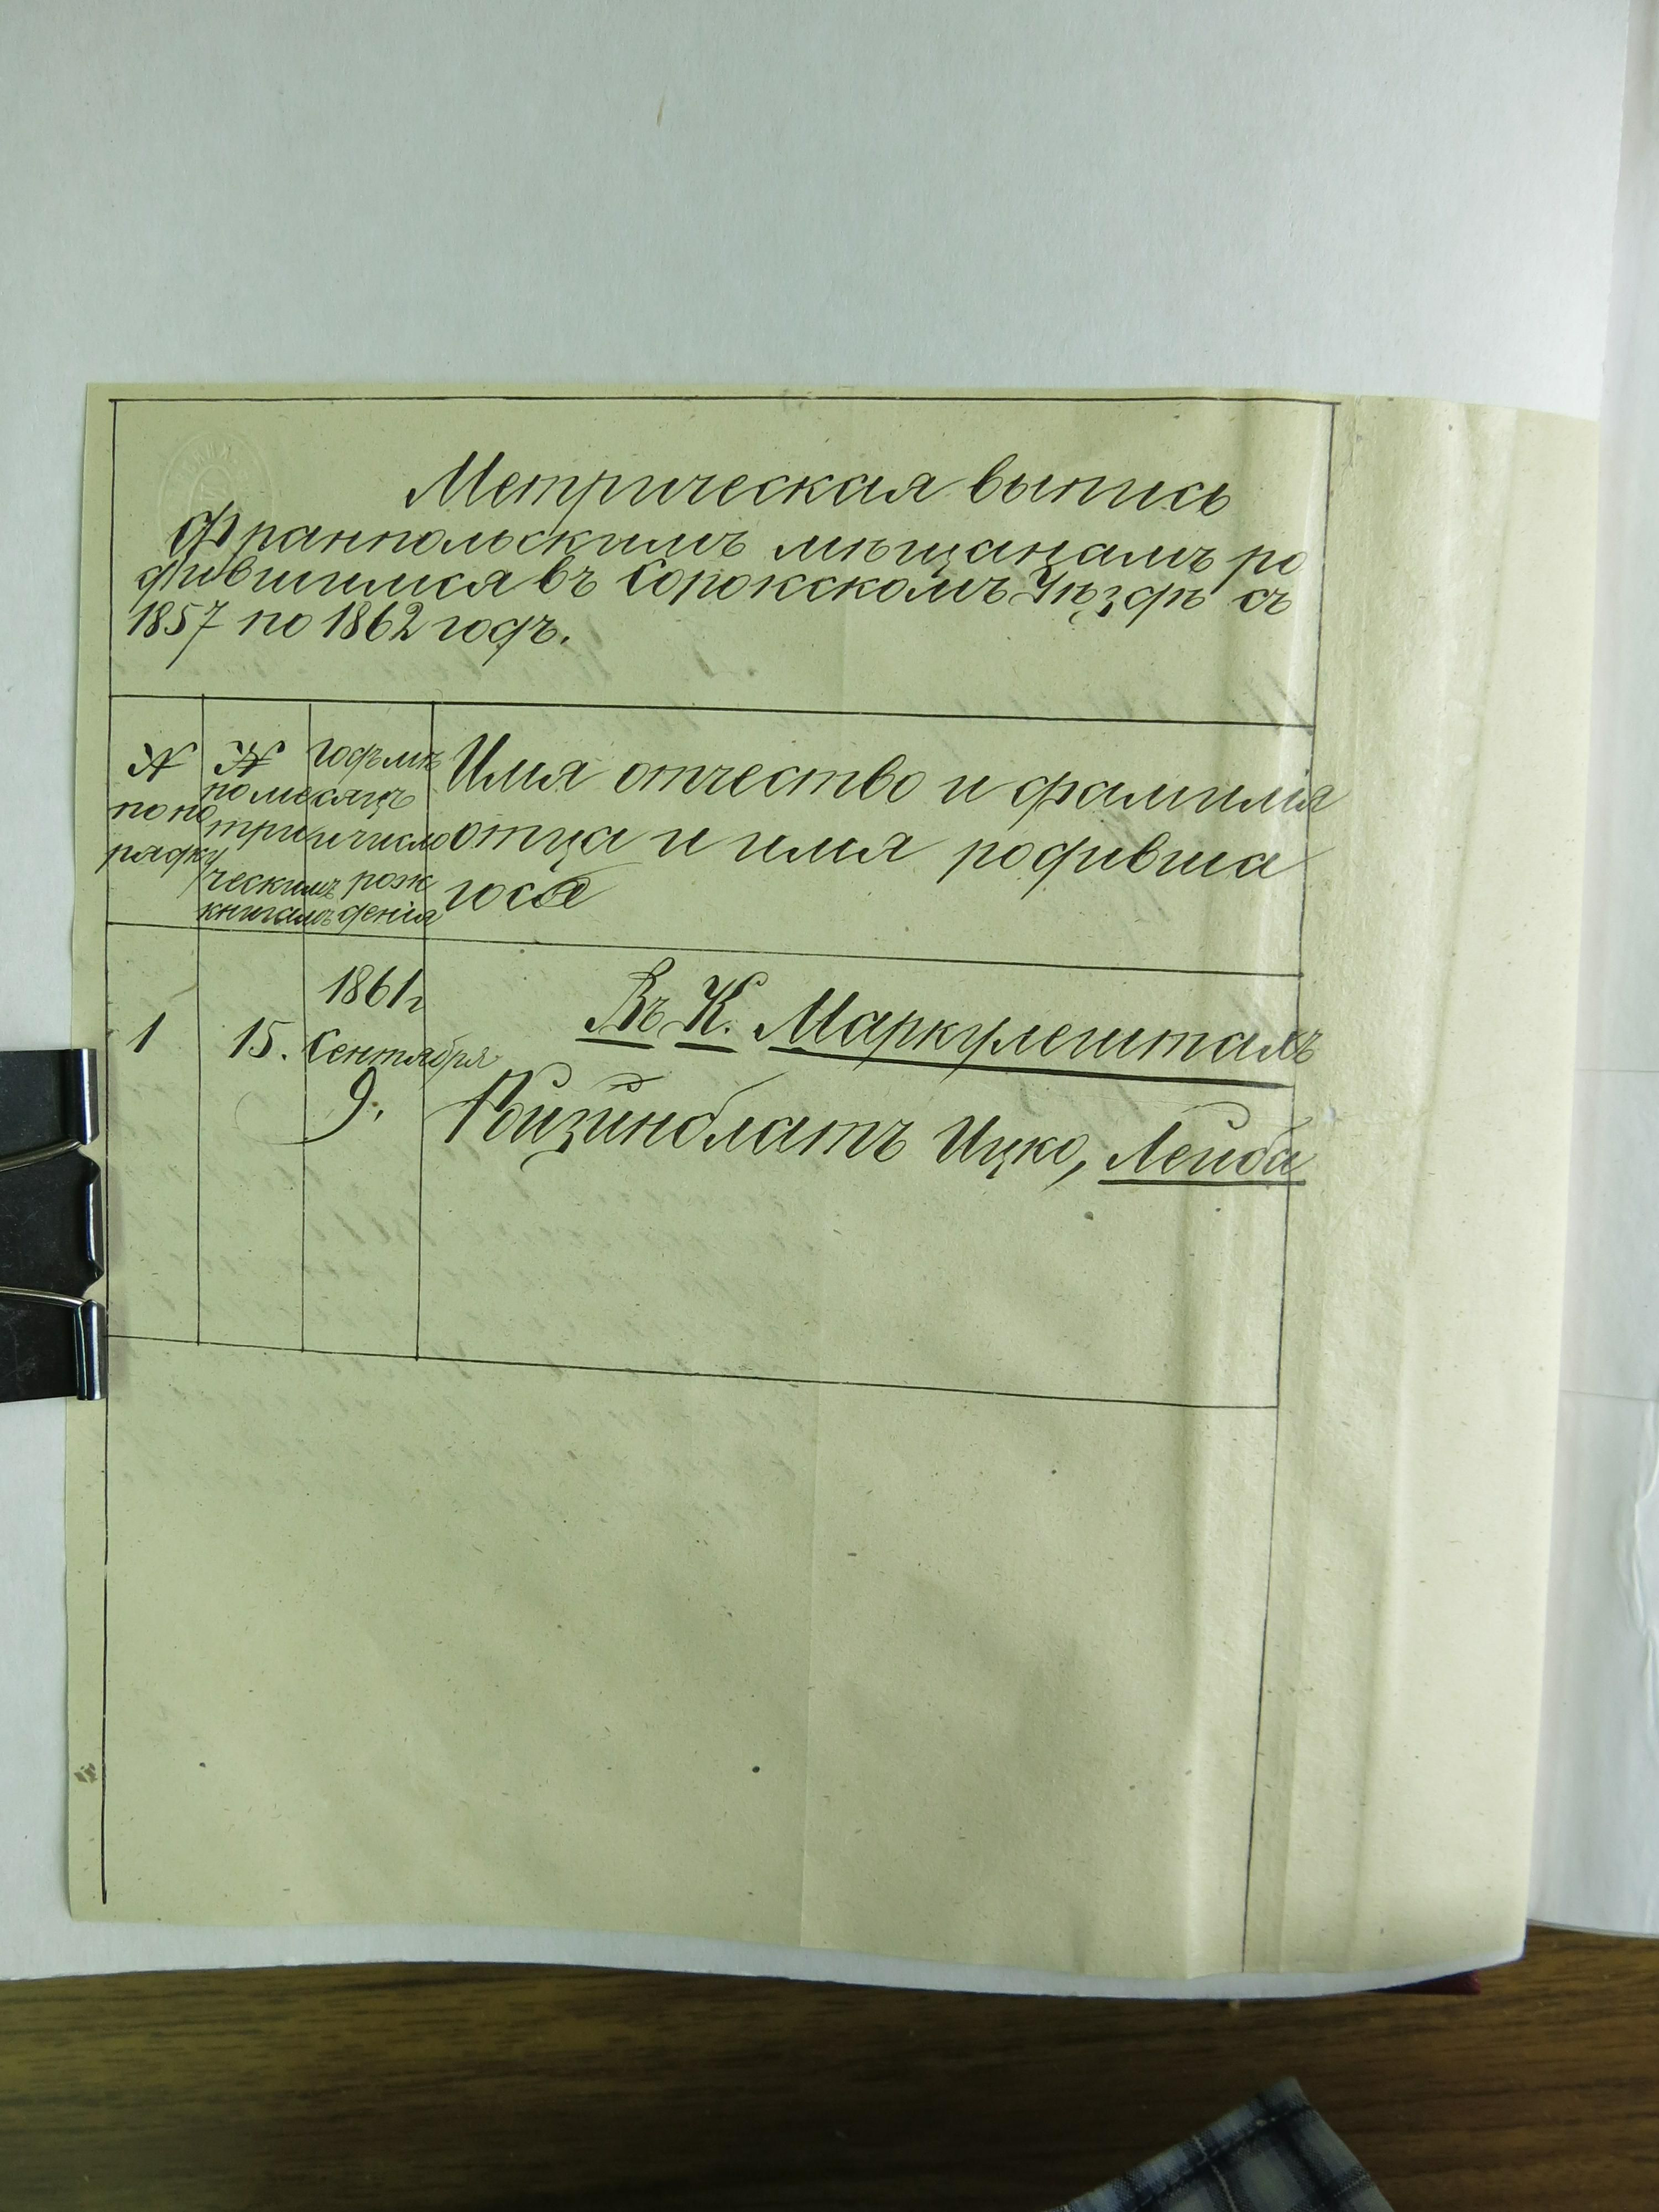 Метрическая выпись
Франпольскимъ мѣщанамъ ро
дившимся въ Сорокскомъ Уѣздѣ съ
1857 по 1862 годъ.
№ по по рядку
№ по ме три ческимъ книгамъ
годъ мѣ сяцъ и число рож денія
Имя отчество и фамилія
отца и имя родивша
гося
1
15.
1861г Сентября 9.
Въ К. Маркулештахъ
Ройзинблатъ Ицко, Лейба